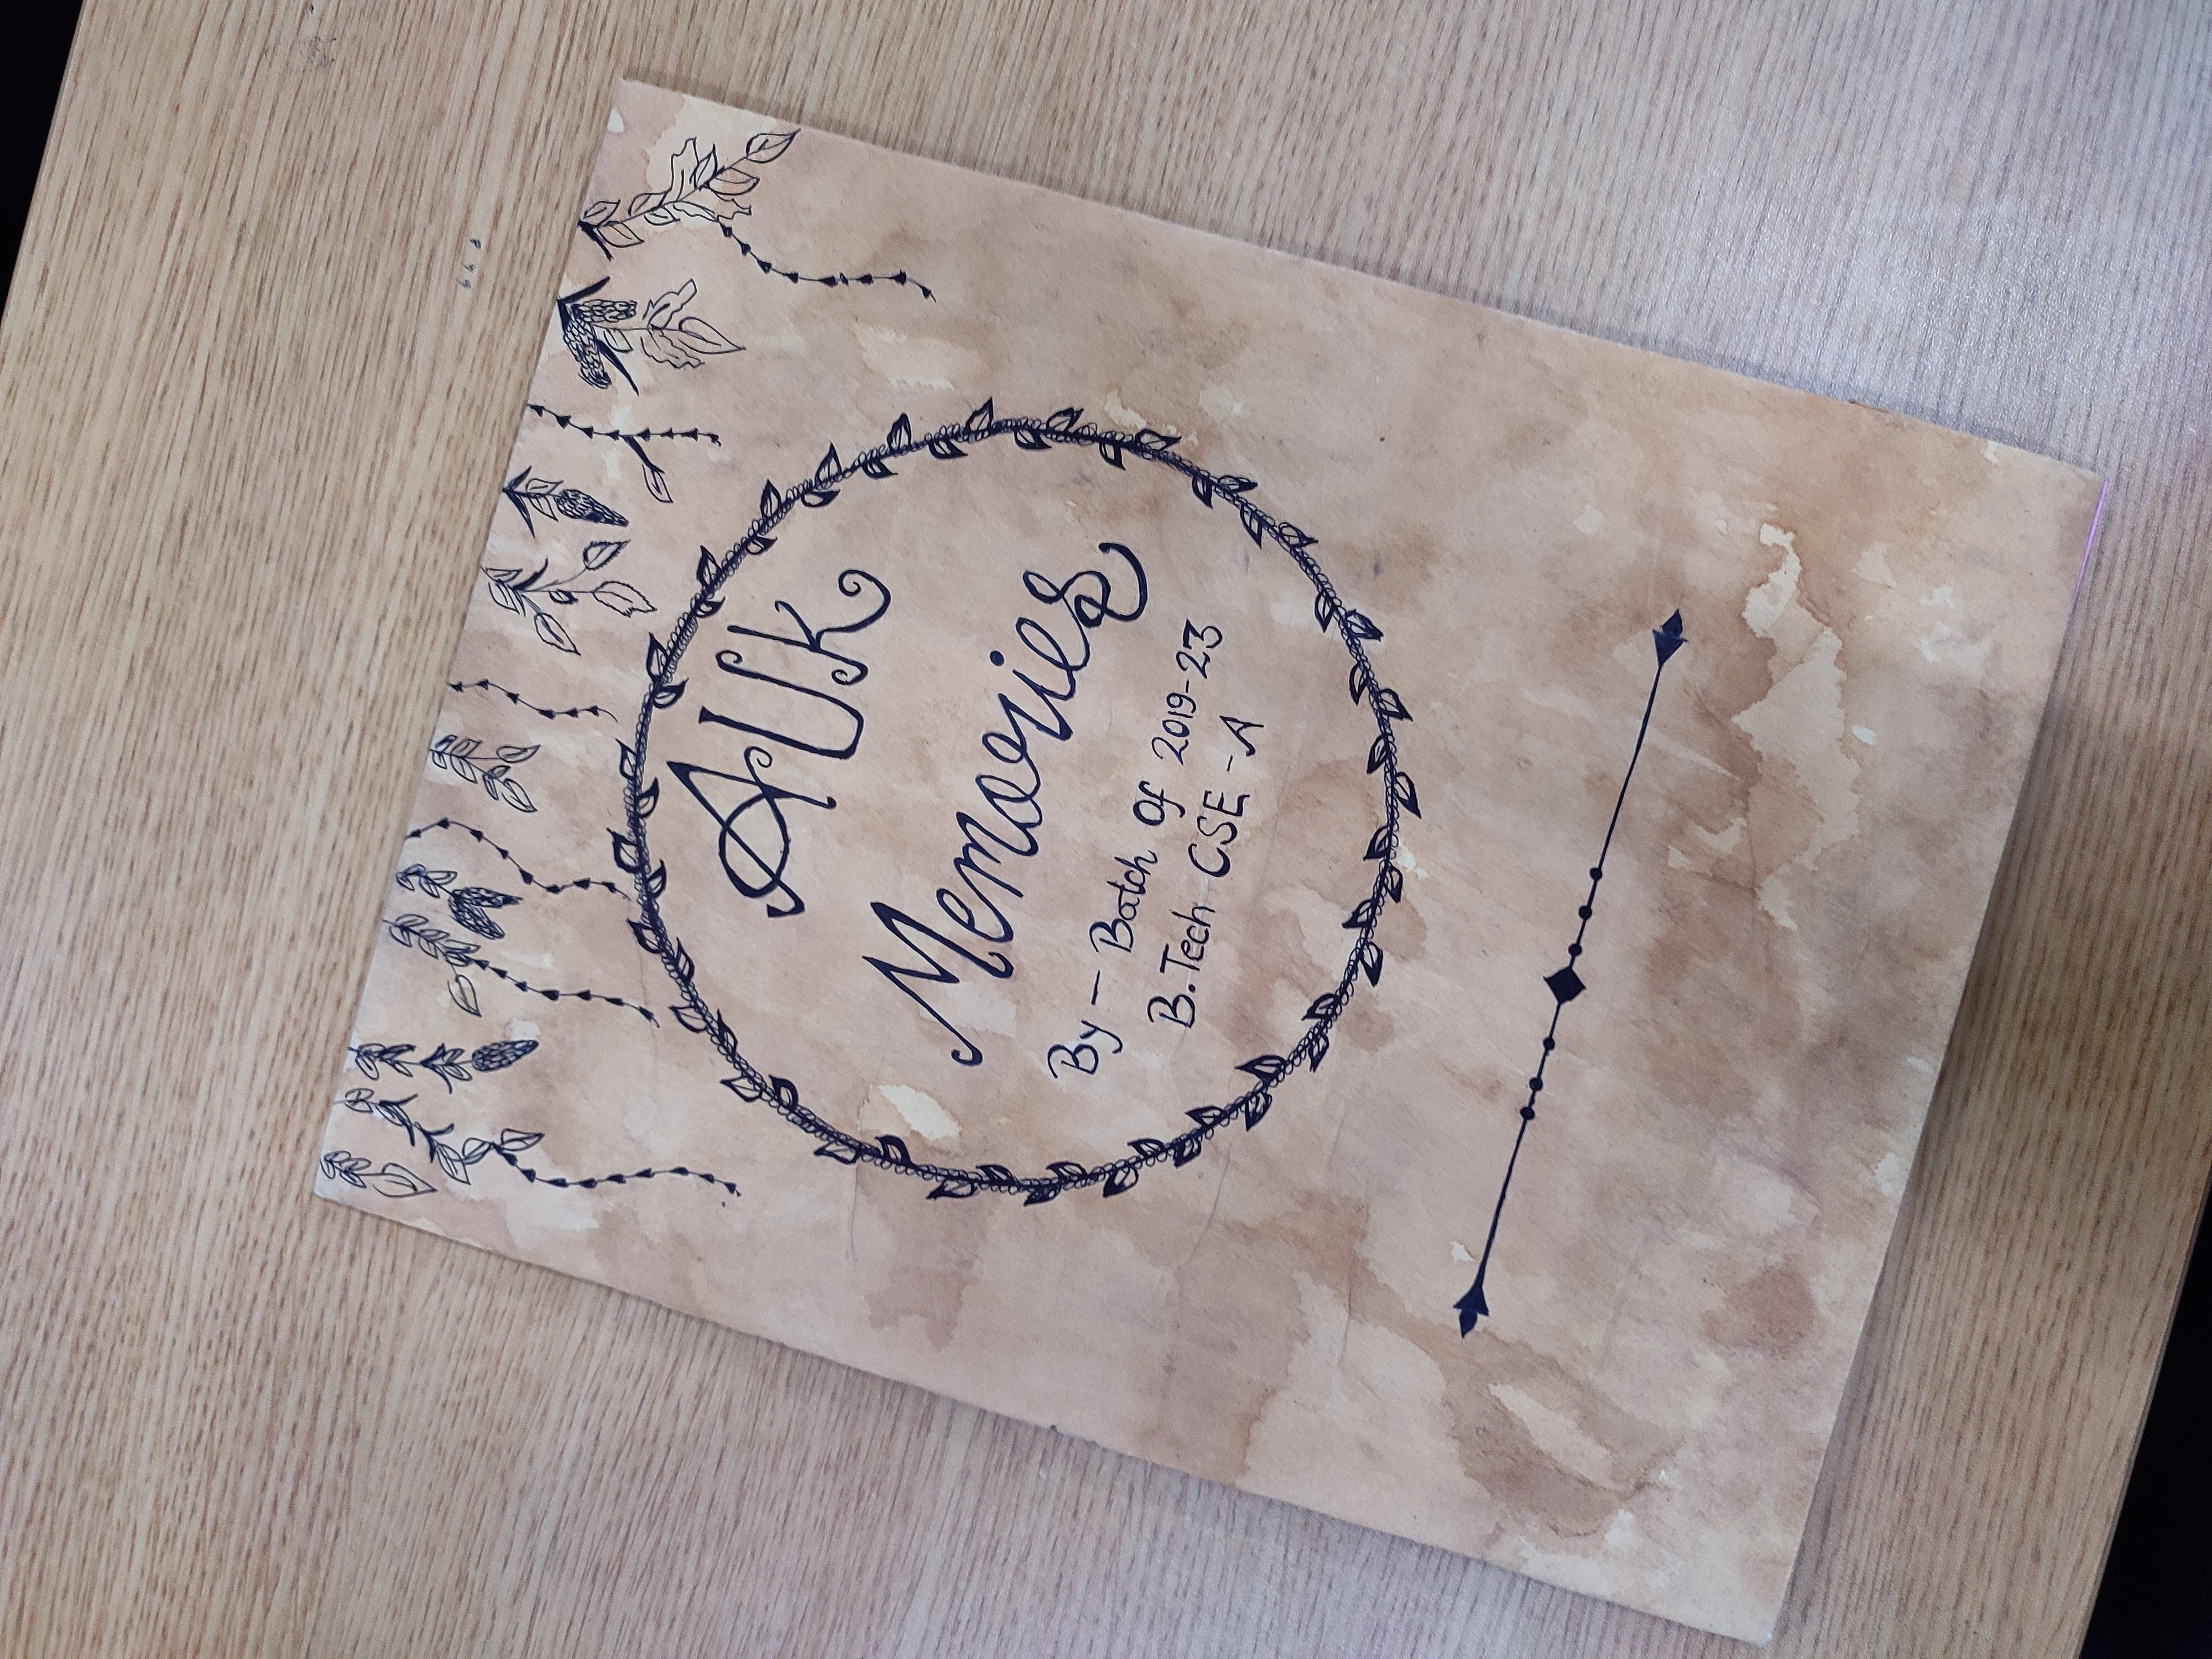 AUk
Memories
By - Batch Of 2019-23
B.Tech CSE -A